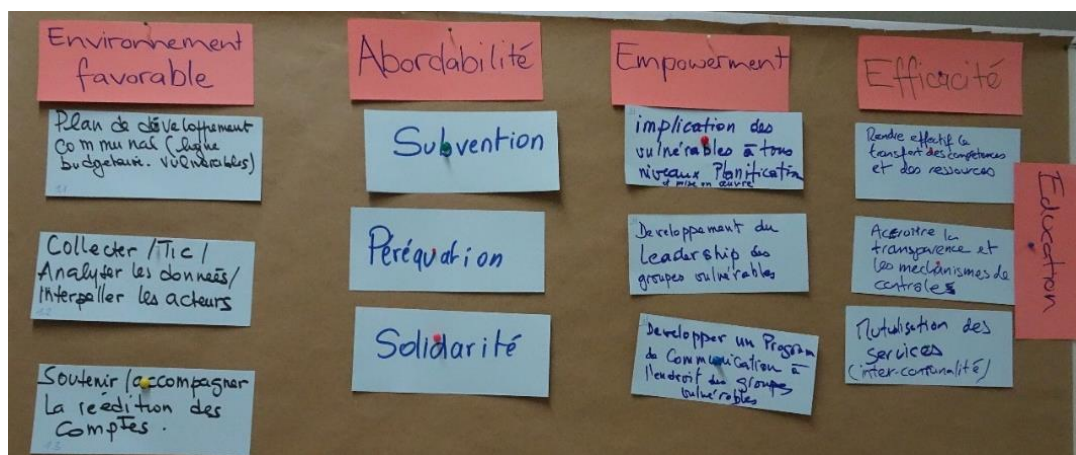 Environnement
favorable
Plan de développement
communal (ligne
budgetaire. vulnérables)
1.1
Collecter / Tic /
Analyser les données/
Interpeller les acteurs
1.2
Soutenir / accompagner
la reédition des
comptes.
1.3
Abordabilité
Subvention
Péréquation
Solidarité
Empowerment
implication des
vulnérables à tous
niveaux Planification
et mise en œuvre
Developpement du
Leadership des
groupes vulnérables
Developper un Program
de Communication à
l'endroit des groupes
vulnérables
Efficacité
Rendre effectif le
transfert des compétences
et des ressources
Accroitre la
transparence et
les mechanismes de
contrôles
Mutualisation des
services
(inter-communalité)
Education